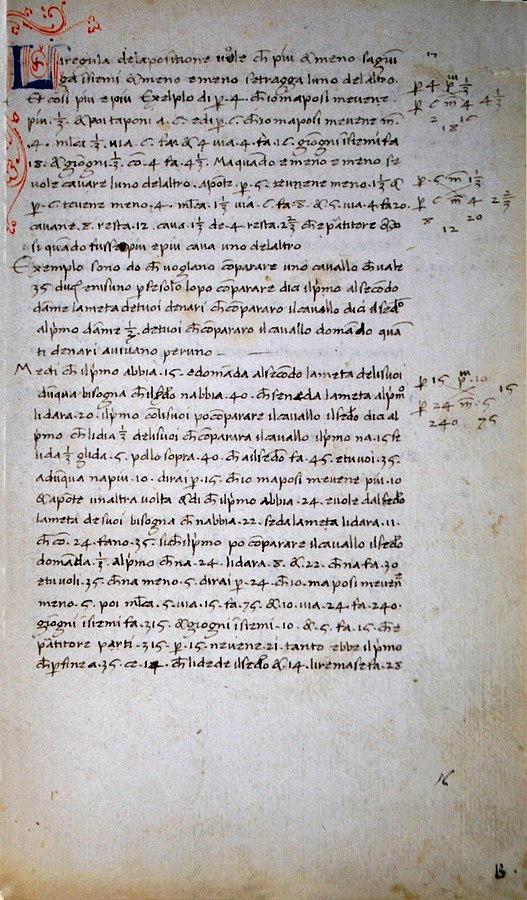 La regula dela positione vole ch piu & meno sagiū
ga īsiemi & meno e meno setragga luno delaltro.
Et cosi piu e piu Exēplo di p. 4. ch io maposi mevene
piu. ⅓. & poi taponi a. 6. e di p. 6. ch io maposi mevene m̄.
4. mĺca ⅓. via. 6. fa 2. & 4 via. 4. fa. 16. giōgni īsiemi fa
18. & giōgni ⅓. cō. 4 fa. 4⅓. Ma quādo e meno e meno se
vole cavare luno delaltro. apōte. p. 5. tevnene meno. 1⅓ &
p. 6. tevene meno. 4. mĺca. 1⅓ via. 6. fa. 8. & 5. via. 4 fa 20.
cavane. 8. resta. 12. cava. 1⅓ de. 4 resta. 2⅔ ch e pātitore & co
si quādo fusse piu e piu cava uno delaltro
Exemplo sono do ch voglano cōparare uno cavallo ch vale
35 duc̄. e nisuno p se solo lo po cōparare dici ilpīmo al secōdo
dāme la meta de tuoi denari ch cōpararo il cavallo dici il sed̄o
al pīmo dāme ⅓. de tuoi ch cōpararo il cavallo domādo quā
ti denari avivano per uno
Medi ch ilpīmo abbia. 15. e domāda al secōdo la meta deli suoi
dūqua bisogna ch il sed̄o n abbia. 40. ch sene da la meta al pīmo
li dara. 20. il pīmo coli suoi po cōparare il cavallo il sed̄o dici al
pīmo ch li dia ⅓ deli suoi ch cōparara il cavallo ilpīmo na. 15 se
li da ⅓ gli da. 5. pollo sopra. 40. ch a il sed̄o fa. 45. e tu voi. 35.
adūqua na piu. 10. dirai p. 15. ch io maposi mevene piu. 10
& apōte unaltra volta & di ch ilpīmo abbia. 24. e vole dal sed̄o
la meta de suoi bisogna ch nabbia. 22. se da la meta li dara. 11
ch cō. 24. fano. 35. sich ilpīmo po cōparare il cavallo il sed̄o
domāda. ⅓. al pīmo ch na. 24. li dara. 8. & 22. ch na fa. 30
e tu voli. 35. ch na meno. 5. dirai p. 24. ch io. maposi meven̄
meno. 5. poi mĺca. 5. via. 15. fa. 75. & 10. via. 24. fa. 240.
giōgni īsiemi fa. 315. & giōgni īsiemi. 10. & 5. fa. 15. ch e
pātitore parti. 315. p. 15. nevene. 21. tanto ebbe il pīmo
ch p fine a. 35. ce. 14. ch li dede il sed̄o & 14. li remase fa. 28
p 4 p̄ ⅓
p 6 m̄ 4 4⅓
2 16
18
p 5 m̄ 1⅓
p 6 m̄ 4 2⅔
8 20
12
p 15 p̄. 10 15
p 24 m̄. 5
240 75
16
B